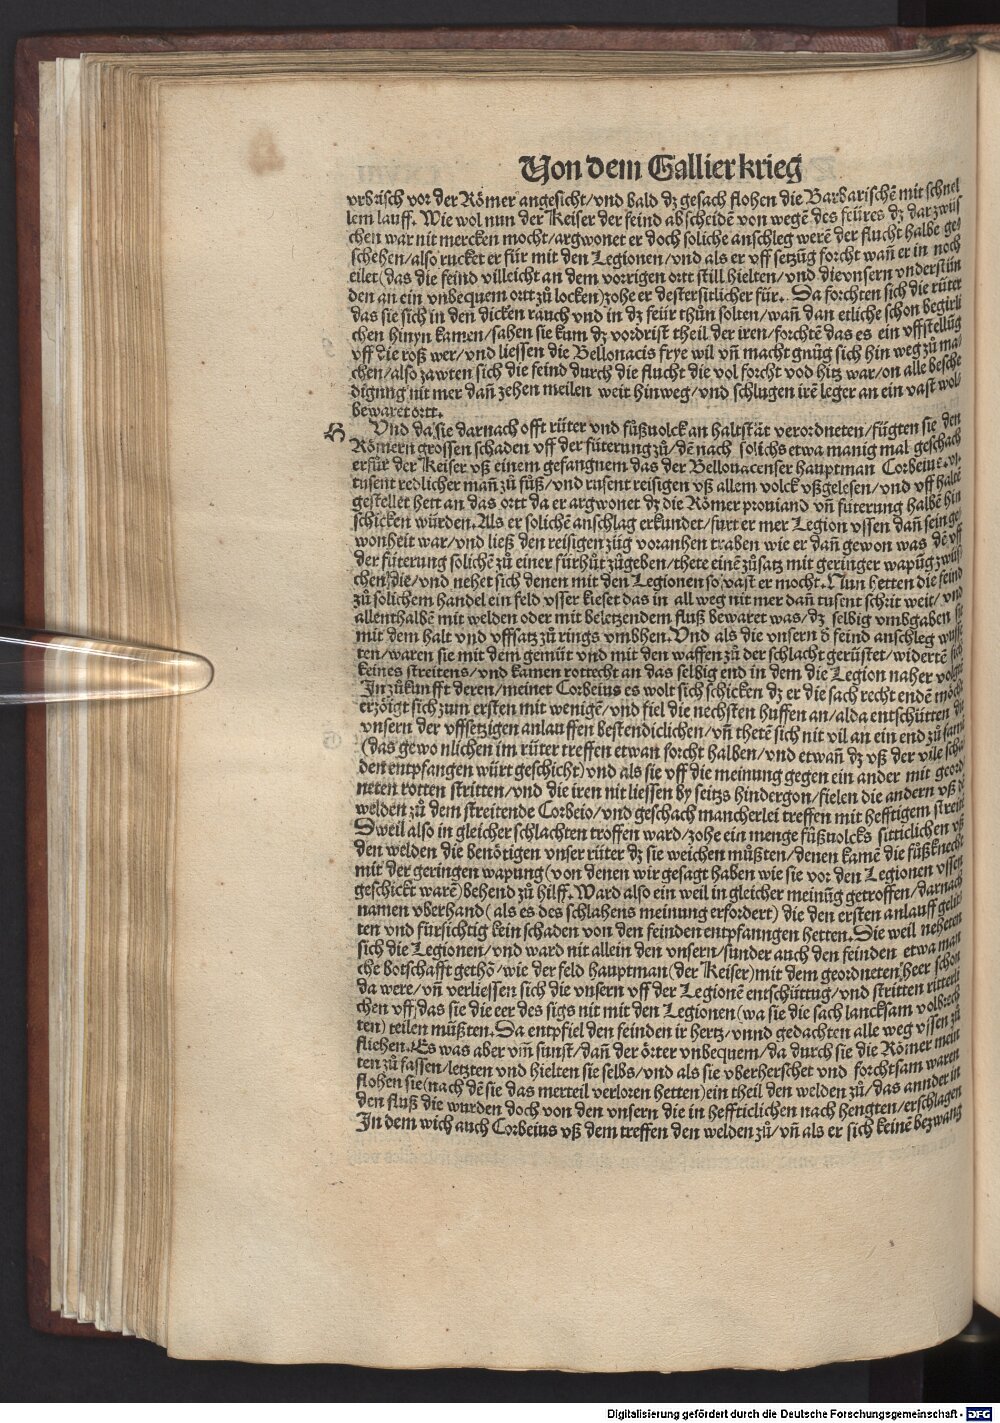 Von dem Gallier krieg
vrbrisch vor der Römer angesicht/vnd bald dz gesach flohen die Barbarischē mit schnel
lem lauff. Wie wol nun der Keiser der feind abscheidē von wegē des feüres dz darzwüs
chen war nit mercken mocht/argwonet er doch soliche anschleg werē der flucht halbe ge
schehen/also rucket er für mit den Legionen/vnd als er vff setzūg forcht wañ er in noch
eilet(das die feind villeicht an dem vorrigen ortt still hielten/vnd die vnsern vnderstün
den an ein vnbequem ortt zů locken)zohe er destersitlicher für. Da forchten sich die rüter
das sie sich in den dicken rauch vnd in dz feür thůn solten/wañ dan etliche schon begirli
chen hinyn kamen/sahen sie kum dz vordrist theil der iren/forchtē das es ein vffstellūg
vff die roß wer/vnd liessen die Bellonacis frye wil vñ macht gnůg sich hin weg zů ma
chen/also zawten sich die feind durch die flucht die vol forcht vod hitz war/on alle besche
digung nit mer dañ zehen meilen weit hinweg/vnd schlugen irē leger an ein vast wol
bewaret ortt.
B Vnd da sie darnach offt rüter vnd fůßuolck an haltstät verordneten/fůgten sie den
Römern grossen schaden vff der fůterung zů/dē nach solichs etwa manig mal geschach
erfůr der Keiser vß einem gefangnem das der Bellouacenser hauptman Corbeius .vi.
tusent redlicher mañ zů fůß/vnd tusent reisigen vß allem volck vßgelesen/vnd vff halt
gestellet hett an das ortt da er argwonet dz die Römer prouiand vñ fůterung halbē hin
schicken würden. Als er solichē anschlag erkundet/fürt er mer Legion vssen dañ sein ge
wonheit war/vnd ließ den reisigen züg voranhen traben wie er dañ gewon was dē vff
der fůterung solichē zů einer fürhůt zůgeben/thete einē zůsatz mit geringer wapūg zwüs
chen die/vnd nehet sich denen mit den Legionen so vast er mocht. Nun hetten die feind
zů solichem handel ein feld vsser kieset das in all weg nit mer dañ tusent schrit weit/vnd
allenthalbē mit welden oder mit beletzendem fluß bewaret was/dz selbig vmbgaben sie
mit dem halt vnd vffsatz zů rings vmbhen. Vnd als die vnsern d̄ feind anschleg wuß
ten/waren sie mit dem gemüt vnd mit den waffen zů der schlacht gerüstet/widertē sich
keines streitens/vnd kamen rottecht an das selbig end in dem die Legion naher volgtē
In zůkunfft deren/meiner Corbeius es wolt sich schicken dz er die sach recht endē möcht
erzöigt sich zum ersten mit wenigē/vnd fiel die nechsten huffen an/alda entschütten die
vnsern der vffsetzigen anlauffen bestendiclichen/vñ thetē sich nit vil an ein end zů samē
(das gewonlichen im rüter treffen etwan forcht halben/vnd etwañ dz vß der vile scha
den entpfangen würt geschicht)vnd als sie vff die meinung gegen ein ander mit geord
neten rotten stritten/vnd die iren nit liessen by seitzs hindergon/fielen die andern vß dē
welden zů dem streitende Corbeio/vnd geschach mancherlei treffen mit hefftigem streit
Dweil also in gleicher schlachten troffen ward/zohe ein menge fůßuolcks sitticlichen vß
den welden die benötigen vnser rüter dz sie weichen můßten/denen kamē die fůßknecht
mit der geringen wapung(von denen wir gesagt haben wie sie vor den Legionen vssen
geschickt warē)behend zů hilff. Ward also ein weil in gleicher meinūg getroffen/darnach
namen vberhand(als es des schlahens meinung erfordert) die den ersten anlauff gelit
ten vnd fürsichtig kein schaden von den feinden entpfanngen hetten. Die weil neheten
sich die Legionen/vnd ward nit allein den vnsern/sunder auch den feinden etwa man
che botschafft gethō/wie der feld hauptman(der Keiser)mit dem geordneten heer schon
da were/vñ verliessen sich die vnsern vff der Legionē entschüttug/vnd stritten ritterli
chen vff/das sie die eer des sigs nit mit den Legionen(wa sie die sach lancksam volbrech
ten) teilen müßten. Da entpfiel den feinden ir hertz/vnnd gedachten alle weg vssen zů
fliehen. Es was aber vm̄ sunst/dañ der örter vnbequem/da durch sie die Römer mein
ten zů fassen/letzten vnd hielten sie selbs/vnd als sie vberherschet vnd forchtsam waren
flohen sie(nach dē sie das merteil verloren hetten)ein theil den welden zů/das annder in
den fluß die wurden doch von den vnsern die in heffticlichen nach hengten/erschlagen
In dem wich auch Corbeius vß dem treffen den welden zů/vñ als er sich keinē bezwang
Digitalisierung gefördert durch die Deutsche Forschungsgemeinschaft - DFG